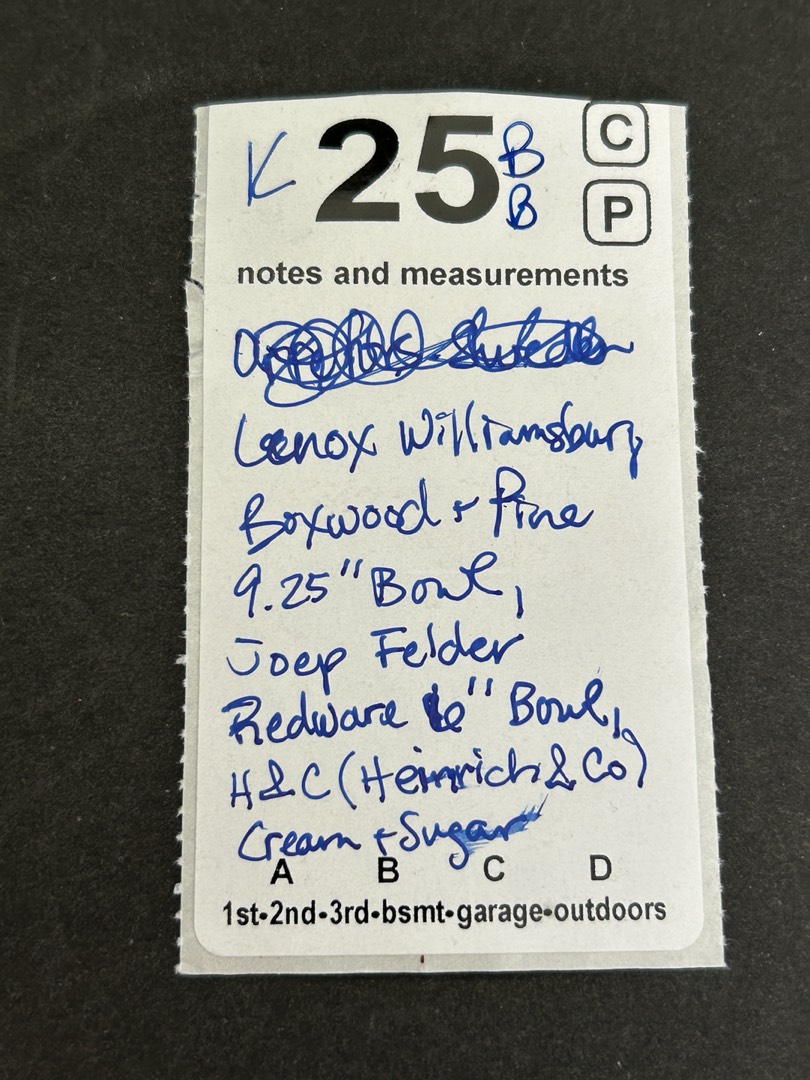 K 25 B B C P
notes and measurements
Lenox Williamsburg
Boxwood + Pine
9.25" Bowl,
Joep Felder
Redware 6" Bowl,
H&C (Heinrich & Co)
Cream + Sugar
A B C D
1st•2nd•3rd•bsmt•garage•outdoors